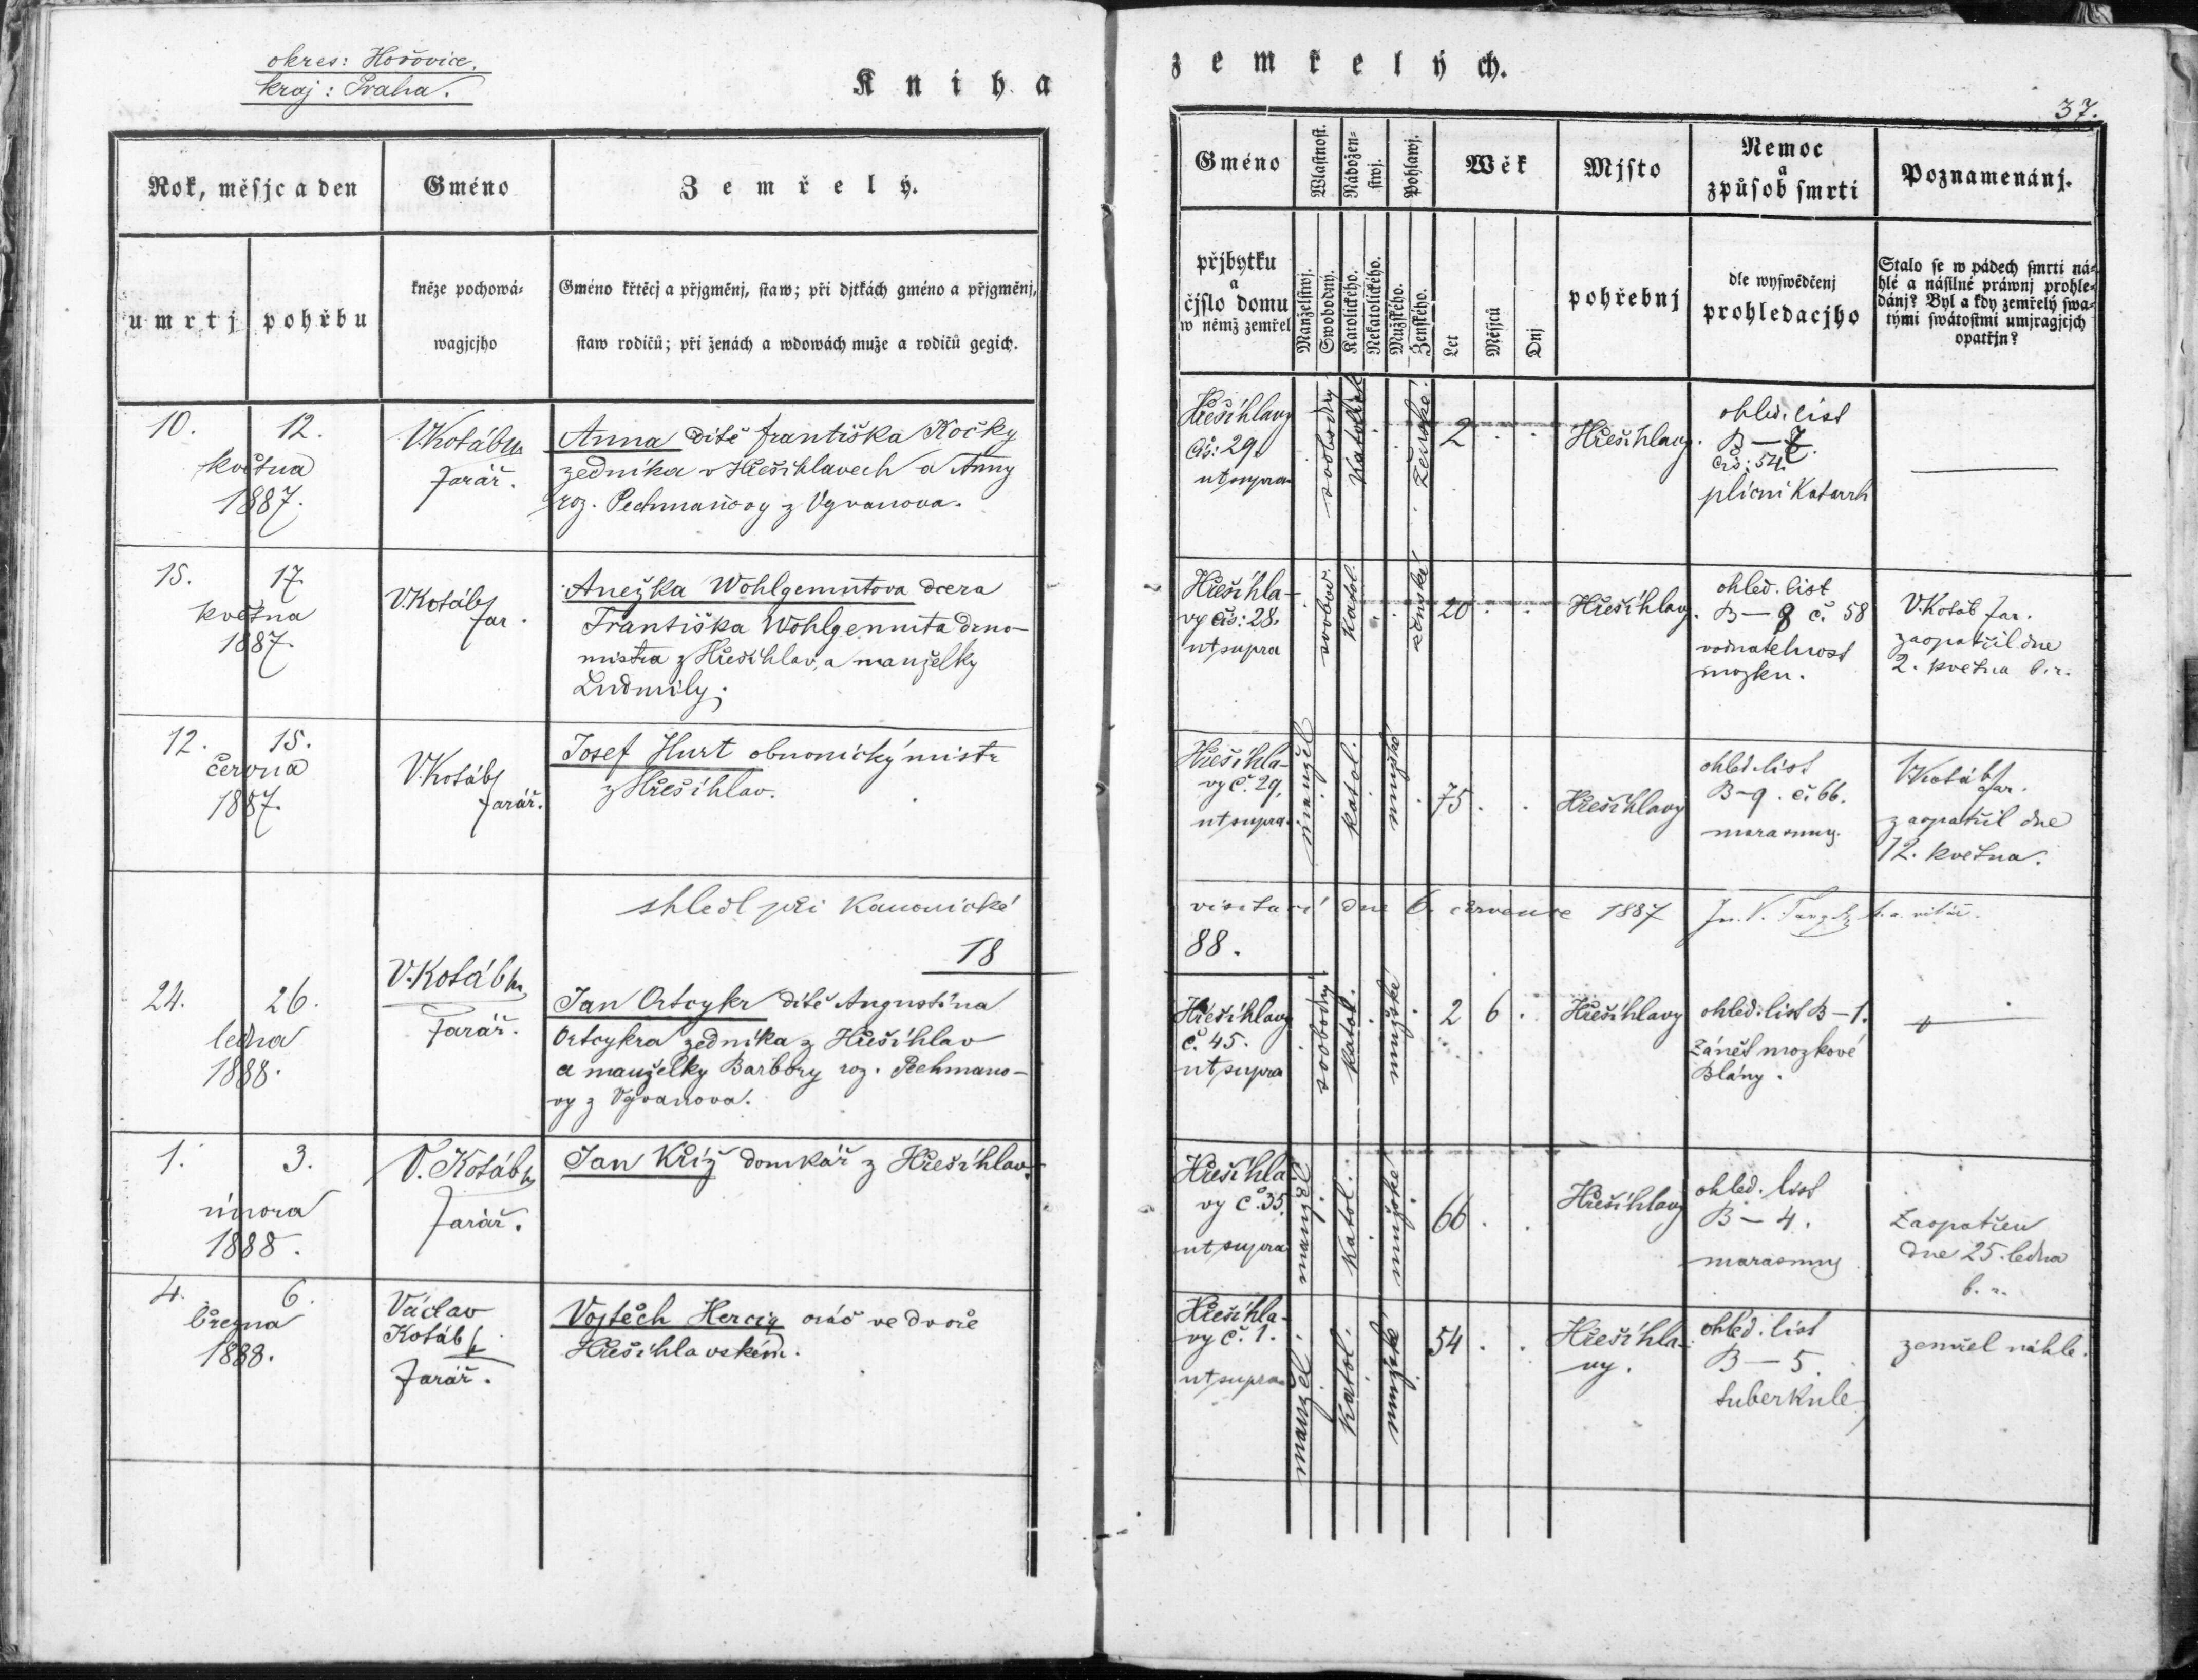 okres: Hořovice.
kraj: Praha.
Kniha zemřelých.
37.
Rok, měsjc a den
Gméno
Zemřelý.
umrtj
pohřbu
kněze pochowá-
wagjcjho
Gméno křtěcj a přjgměnj, staw; při djtkách gméno a přjgměnj,
staw rodičů; při ženách a wdowách muže a rodičů gegich.
Gméno
Wlastnost.
Nábožen-
stwj.
Pohlawj.
Wěk
Mjsto
Nemoc
a
způsob smrti
Poznamenánj.
přjbytku
a
čjslo domu
w němž zemřel
Manželstwj.
Swobodny.
Katolického.
Nekatolického.
Mužského.
Ženského.
Let
Měsjců
Dnj
pohřebnj
dle wyswědčenj
prohledacjho
Stalo se w pádech smrti ná-
hlé a násilné práwnj prohle-
dánj? Byl a kdy zemřelý swa-
tými swátostmi umjragjcjch
opatřjn?
10. 12.
května
1887.
V. Kotáb
farář.
Anna dítě Františka Kočky
zedníka v Hřešihlavech a Anny
roz. Pechmanovy z Vejvanova.
Hřešihlavy
čís: 29.
ut supra
svobodný
katol.
ženské.
2
Hřešihlavy.
ohled. list
B—7
čís: 54.
plicní Katarrh
15. 17.
května
1887.
V. Kotáb
far.
Anežka Wohlgemutova dcera
Františka Wohlgemuta drno-
mistra z Hřešihlav, a manželky
Ludmily;
Hřešihla-
vy čís: 28.
ut supra
svobod.
katol.
ženské
20
Hřešihlavy.
ohled. list
B—8 č. 58
vodnatelnost
mozku.
V. Kotáb far.
zaopatřil dne
2. května b. r.
12. 15.
června
1887.
V. Kotáb
farář.
Josef Hurt obuvnický mistr
z Hřešihlav.
Hřešihla-
vy č. 29.
ut supra.
manžel
katol.
mužské
75.
Hřešihlavy
ohled. list
B-9. č. 66.
marasmus.
V. Kotáb
far.
zaopatřil dne
12. května.
shledl při kanonické visitaci dne 6. července 1887
1888.
24. 26.
ledna
1888.
V. Kotáb
farář.
Jan Ortcykr dítě Augustina
Ortcykra zedníka z Hřešihlav
a manželky Barbory roz. Pechmano-
vy z Vejvanova.
Hřešihlavy
č. 45.
ut supra
svobodný
katol.
mužské
2 6
Hřešihlavy
ohled. list B—1.
Zánět mozkové
Blány.
1. 3.
února
1888.
V. Kotáb
farář.
Jan Kříž domkář z Hřešihlav.
Hřešihla
vy č. 35.
ut supra
manžel
katol.
mužské
66
Hřešihlavy
ohled. list
B—4.
marasmus
Zaopatřen
dne 25. ledna
b. r.
4. 6.
března
1888.
Václav
Kotáb
farář.
Vojtěch Hercig oráč ve dvoře
Hřešihlavském.
Hřešihla-
vy č. 1.
ut supra
manžel.
katol.
mužské
54
Hřešihla-
vy.
ohled. list
B—5.
tuberkule
zemřel náhle.